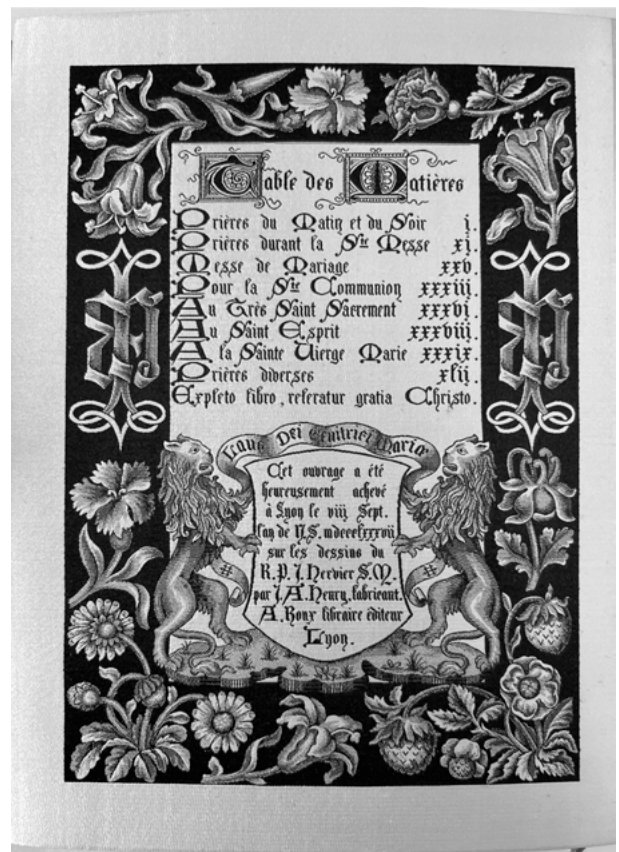 Table des Matières
Prières du Matin et du Soir i.
Prières durant la Ste Messe xi.
Messe de Mariage xxv.
Pour la Ste Communion xxxiii.
Au Très Saint Sacrement xxxvi.
Au Saint Esprit xxxviii.
A la Sainte Vierge Marie xxxix.
Prières diverses xlii.
Expleto libro, referatur gratia Christo.
Laus Dei Genitrici Mariæ
Cet ouvrage a été
heureusement achevé
à Lyon le viij Sept.
lan de N.S. mdccclxxxvii
sur les dessins du
R.P. J. Hervier S.M.
par J.A. Henry, fabricant.
A. Roux libraire éditeur
Lyon.